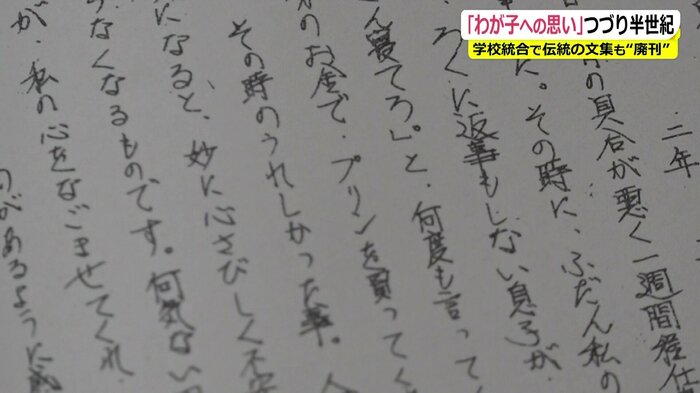 「わが子への思い」つづり半世紀
学校統合で伝統の文集も“廃刊”
二年
の具合が悪く一週間程仕
に。その時に、ふだん私の
ろくに返事もしない息子が
ん寝てろ。」と、何度も言って
のお金で、プリンを買ってく
その時のうれしかった事。
になると、妙に心さびしく不安
なくなるものです。何気ない
が、私の心をなごませてくれ
があるように